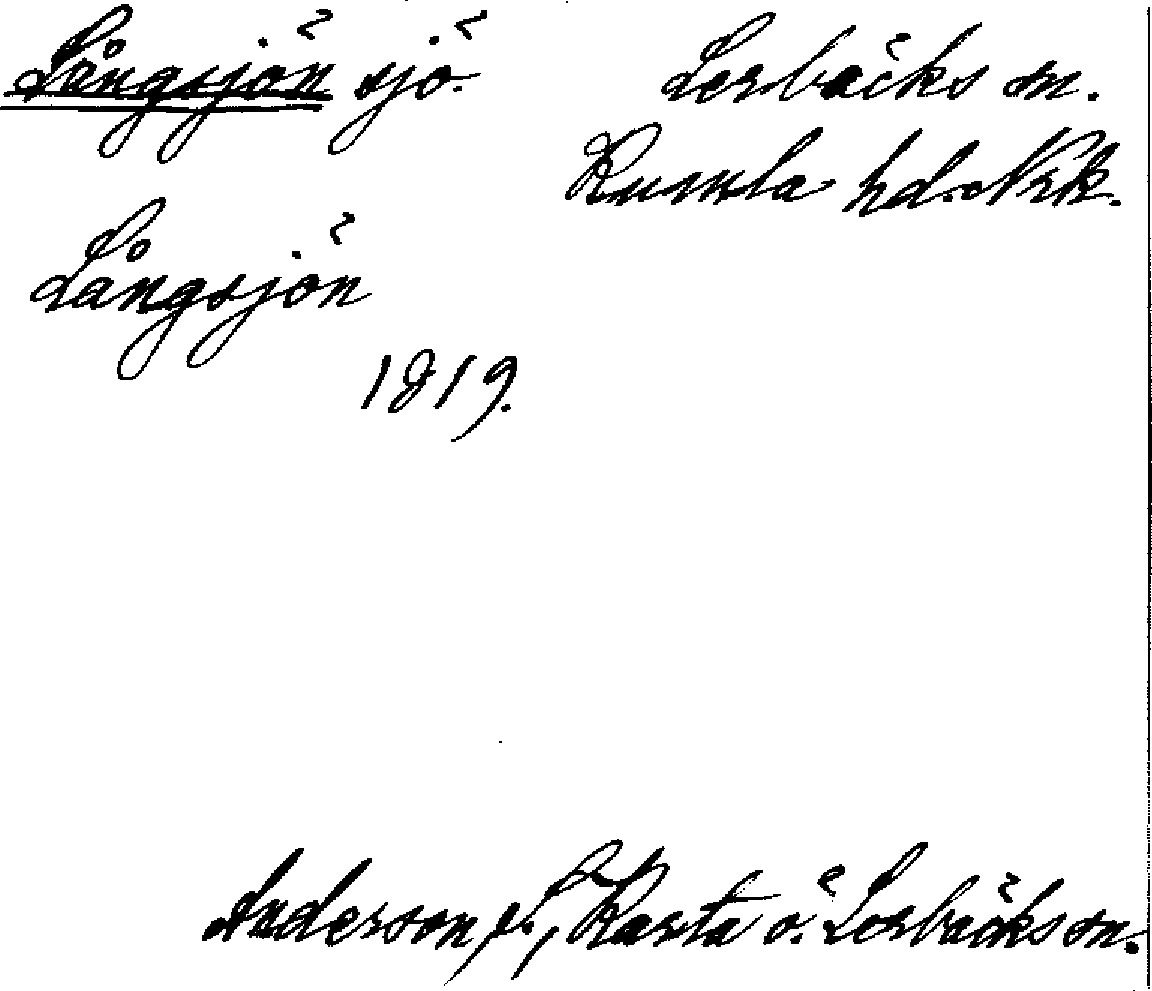 Långsjön sjö. Lerbäcks sn.
Kumla hd. Nrk.
Långsjön
1819.
Anderson, J., Karta ö. Lerbäcks sn.